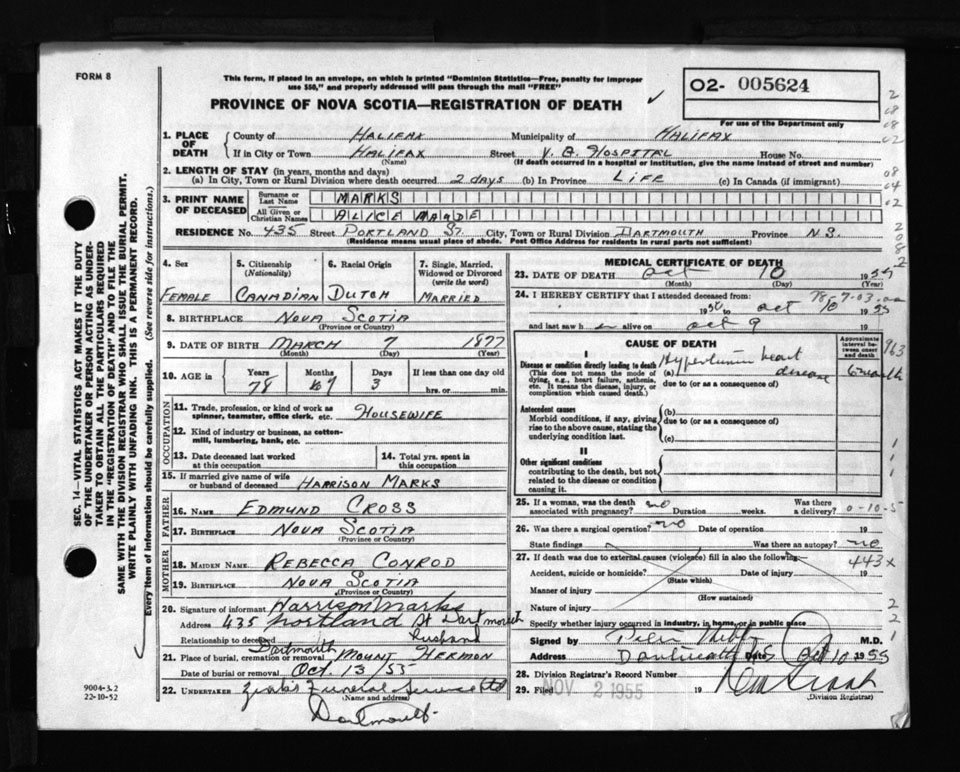 FORM 8
This form, if placed in an envelope, on which is printed "Dominion Statistics—Free, penalty for improper
use $50," and properly addressed will pass through the mail "FREE"
PROVINCE OF NOVA SCOTIA—REGISTRATION OF DEATH ✓
O2- 005624
For use of the Department only
1. PLACE OF DEATH
County of HALIFAX Municipality of HALIFAX
If in City or Town HALIFAX Street V. G. HOSPITAL House No.
(Name) (If death occurred in a hospital or institution, give the name instead of street and number)
2. LENGTH OF STAY (in years, months and days)
(a) In City, Town or Rural Division where death occurred 2 days (b) In Province LIFE (c) In Canada (if immigrant)
3. PRINT NAME OF DECEASED
Surname or Last Name MARKS
All Given or Christian Names ALICE MAUDE
RESIDENCE No. 435 Street PORTLAND ST. City, Town or Rural Division DARTMOUTH Province N.S.
(Residence means usual place of abode. Post Office Address for residents in rural parts not sufficient)
4. Sex
FEMALE
5. Citizenship
(Nationality)
CANADIAN
6. Racial Origin
DUTCH
7. Single, Married, Widowed or Divorced
(write the word)
MARRIED
8. BIRTHPLACE NOVA SCOTIA
(Province or Country)
9. DATE OF BIRTH MARCH 7 1877
(Month) (Day) (Year)
10. AGE in
Years Months Days If less than one day old
78 7 3 hrs. or min.
OCCUPATION
11. Trade, profession, or kind of work as
spinner, teamster, office clerk, etc. HOUSEWIFE
12. Kind of industry or business, as cotton-
mill, lumbering, bank, etc.
13. Date deceased last worked
at this occupation
14. Total yrs. spent in
this occupation
15. If married give name of wife
or husband of deceased HARRISON MARKS
FATHER
16. NAME EDMUND CROSS
17. BIRTHPLACE NOVA SCOTIA
(Province or Country)
MOTHER
18. MAIDEN NAME REBECCA CONROD
19. BIRTHPLACE NOVA SCOTIA
(Province or Country)
20. Signature of informant Harrison Marks
Address 435 Portland St Dartmouth
Relationship to deceased Husband
21. Place of burial, cremation or removal Dartmouth MOUNT HERMON
Date of burial or removal Oct. 13/55
22. UNDERTAKER Funeral Service Ltd
(Name and address)
Dartmouth
MEDICAL CERTIFICATE OF DEATH
23. DATE OF DEATH Oct 10 1955
(Month) (Day) (Year)
24. I HEREBY CERTIFY that I attended deceased from:
1950 to Oct 10 1955
and last saw h alive on Oct 9 19
CAUSE OF DEATH
Approximate interval between onset and death
I
Disease or condition directly leading to death
(This does not mean the mode of
dying, e.g., heart failure, asthenia,
etc. It means the disease, injury, or
complication which caused death.)
(a) Hypertensive heart disease 6 months
due to (or as a consequence of)
Antecedent causes
Morbid conditions, if any, giving
rise to the above cause, stating the
underlying condition last.
(b)
due to (or as a consequence of)
(c)
II
Other significant conditions
contributing to the death, but not
related to the disease or condition
causing it.
25. If a woman, was the death
associated with pregnancy? no Duration weeks. Was there
a delivery?
26. Was there a surgical operation? no Date of operation 19
State findings Was there an autopsy? no
27. If death was due to external causes (violence) fill in also the following:
443x
Accident, suicide or homicide? Date of injury 19
(State which)
Manner of injury
(How sustained)
Nature of injury
Specify whether injury occurred in industry, in home, or in public place
Signed by M.D.
Address Dartmouth Date Oct 10 1955
28. Division Registrar's Record Number
29. Filed NOV 2 1955 19
(Division Registrar)
SEC. 14—VITAL STATISTICS ACT MAKES IT THE DUTY
OF THE UNDERTAKER OR PERSON ACTING AS UNDER-
TAKER TO OBTAIN ALL THE PARTICULARS REQUIRED
IN THE "REGISTRATION OF DEATH" AND TO FILE THE
SAME WITH THE DIVISION REGISTRAR WHO SHALL ISSUE THE BURIAL PERMIT.
WRITE PLAINLY WITH UNFADING INK. THIS IS A PERMANENT RECORD.
Every item of information should be carefully supplied. (See reverse side for instructions.)
9004-3.2
22-10-52